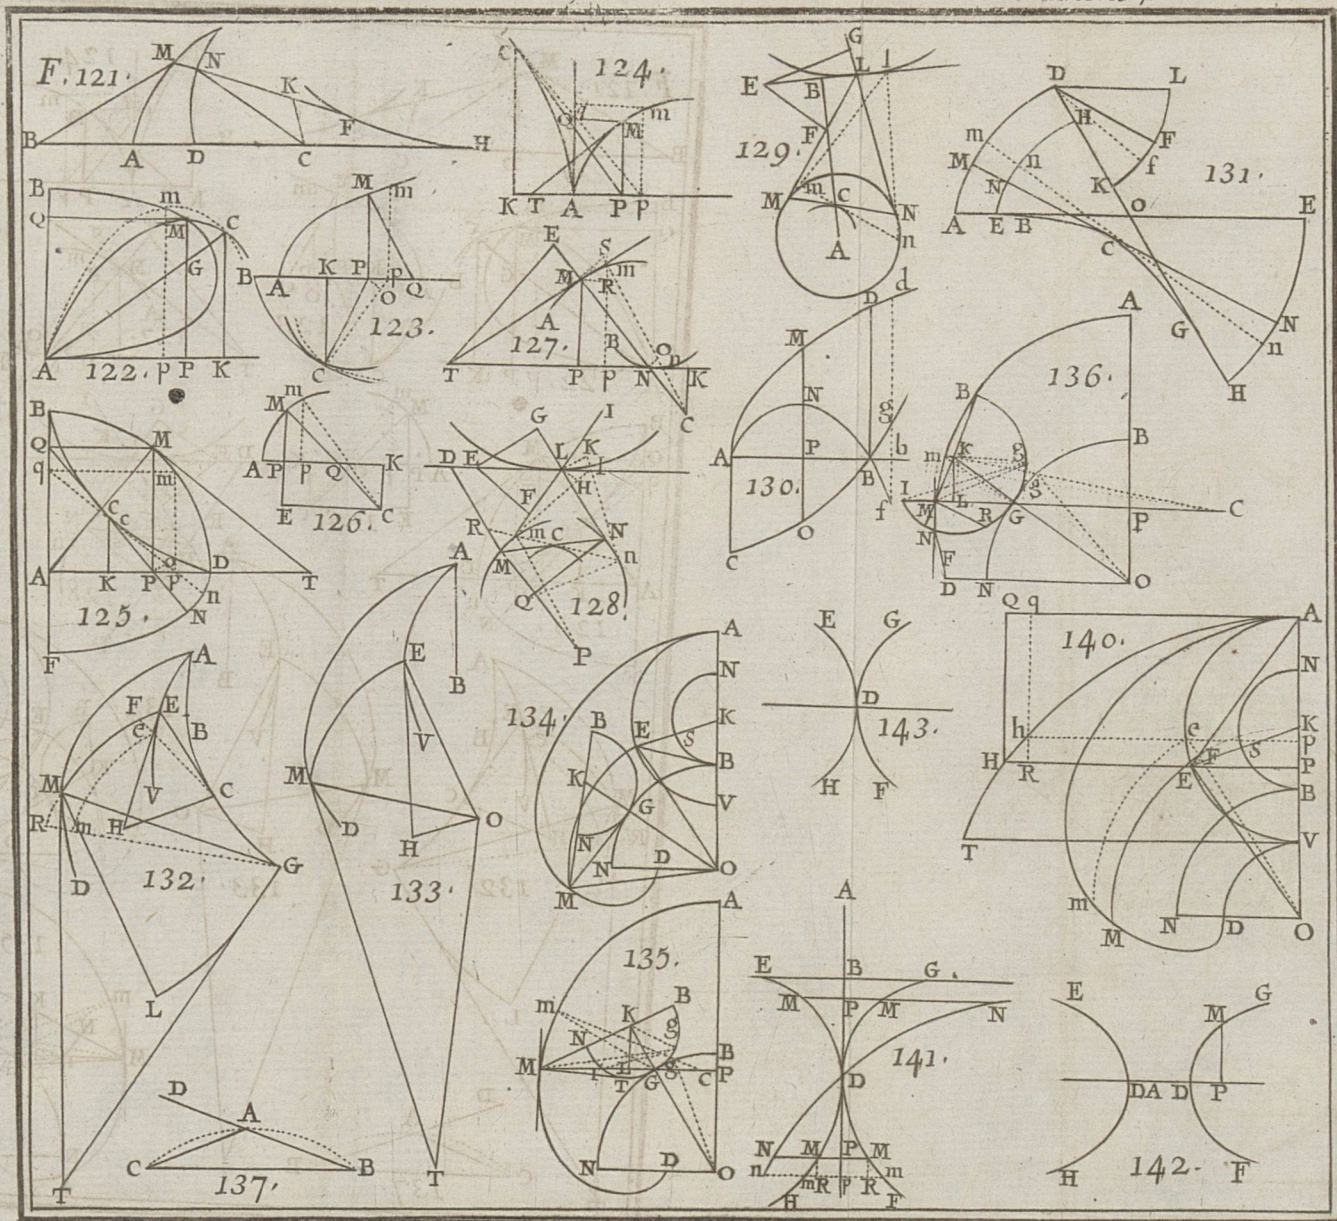 F. 121.
M N K F
B A D C H
124.
C Q q M m
K T A P p
129.
G L l E B F
M m C N n A
131.
D L m H F M n f N K
A E B O E C G N n H
122.
B m Q M C G
A p P K
123.
M m
B A K P p Q O
C
127.
E S M m R A B O n
T P p N K C
130.
D d M N g
A P B b f O C
136.
A B B
m K g g
I M L R G P C N
F D N O
125.
B Q M q m C c
A K P o p D T n N
F
126.
m M
A P p Q K
E C
128.
G I D E L K l
F H R m C N M n
Q P
132.
A F E e B
M V C
R m H G
D
L
T
133.
A E B V
M D H O
T
134.
A N B E K S
K B V G
N N D O
M
143.
E G
D
H F
140.
Q q A
N
h e K
H R E F S p P
B
T V
m M N D O
135.
A m K B N g
M I L T G g C B P
N D O
141.
A
E B G
M P M N
D
N M P M
n m R p R m
H F
142.
E G M
D A D P
H F
137.
D A
C B